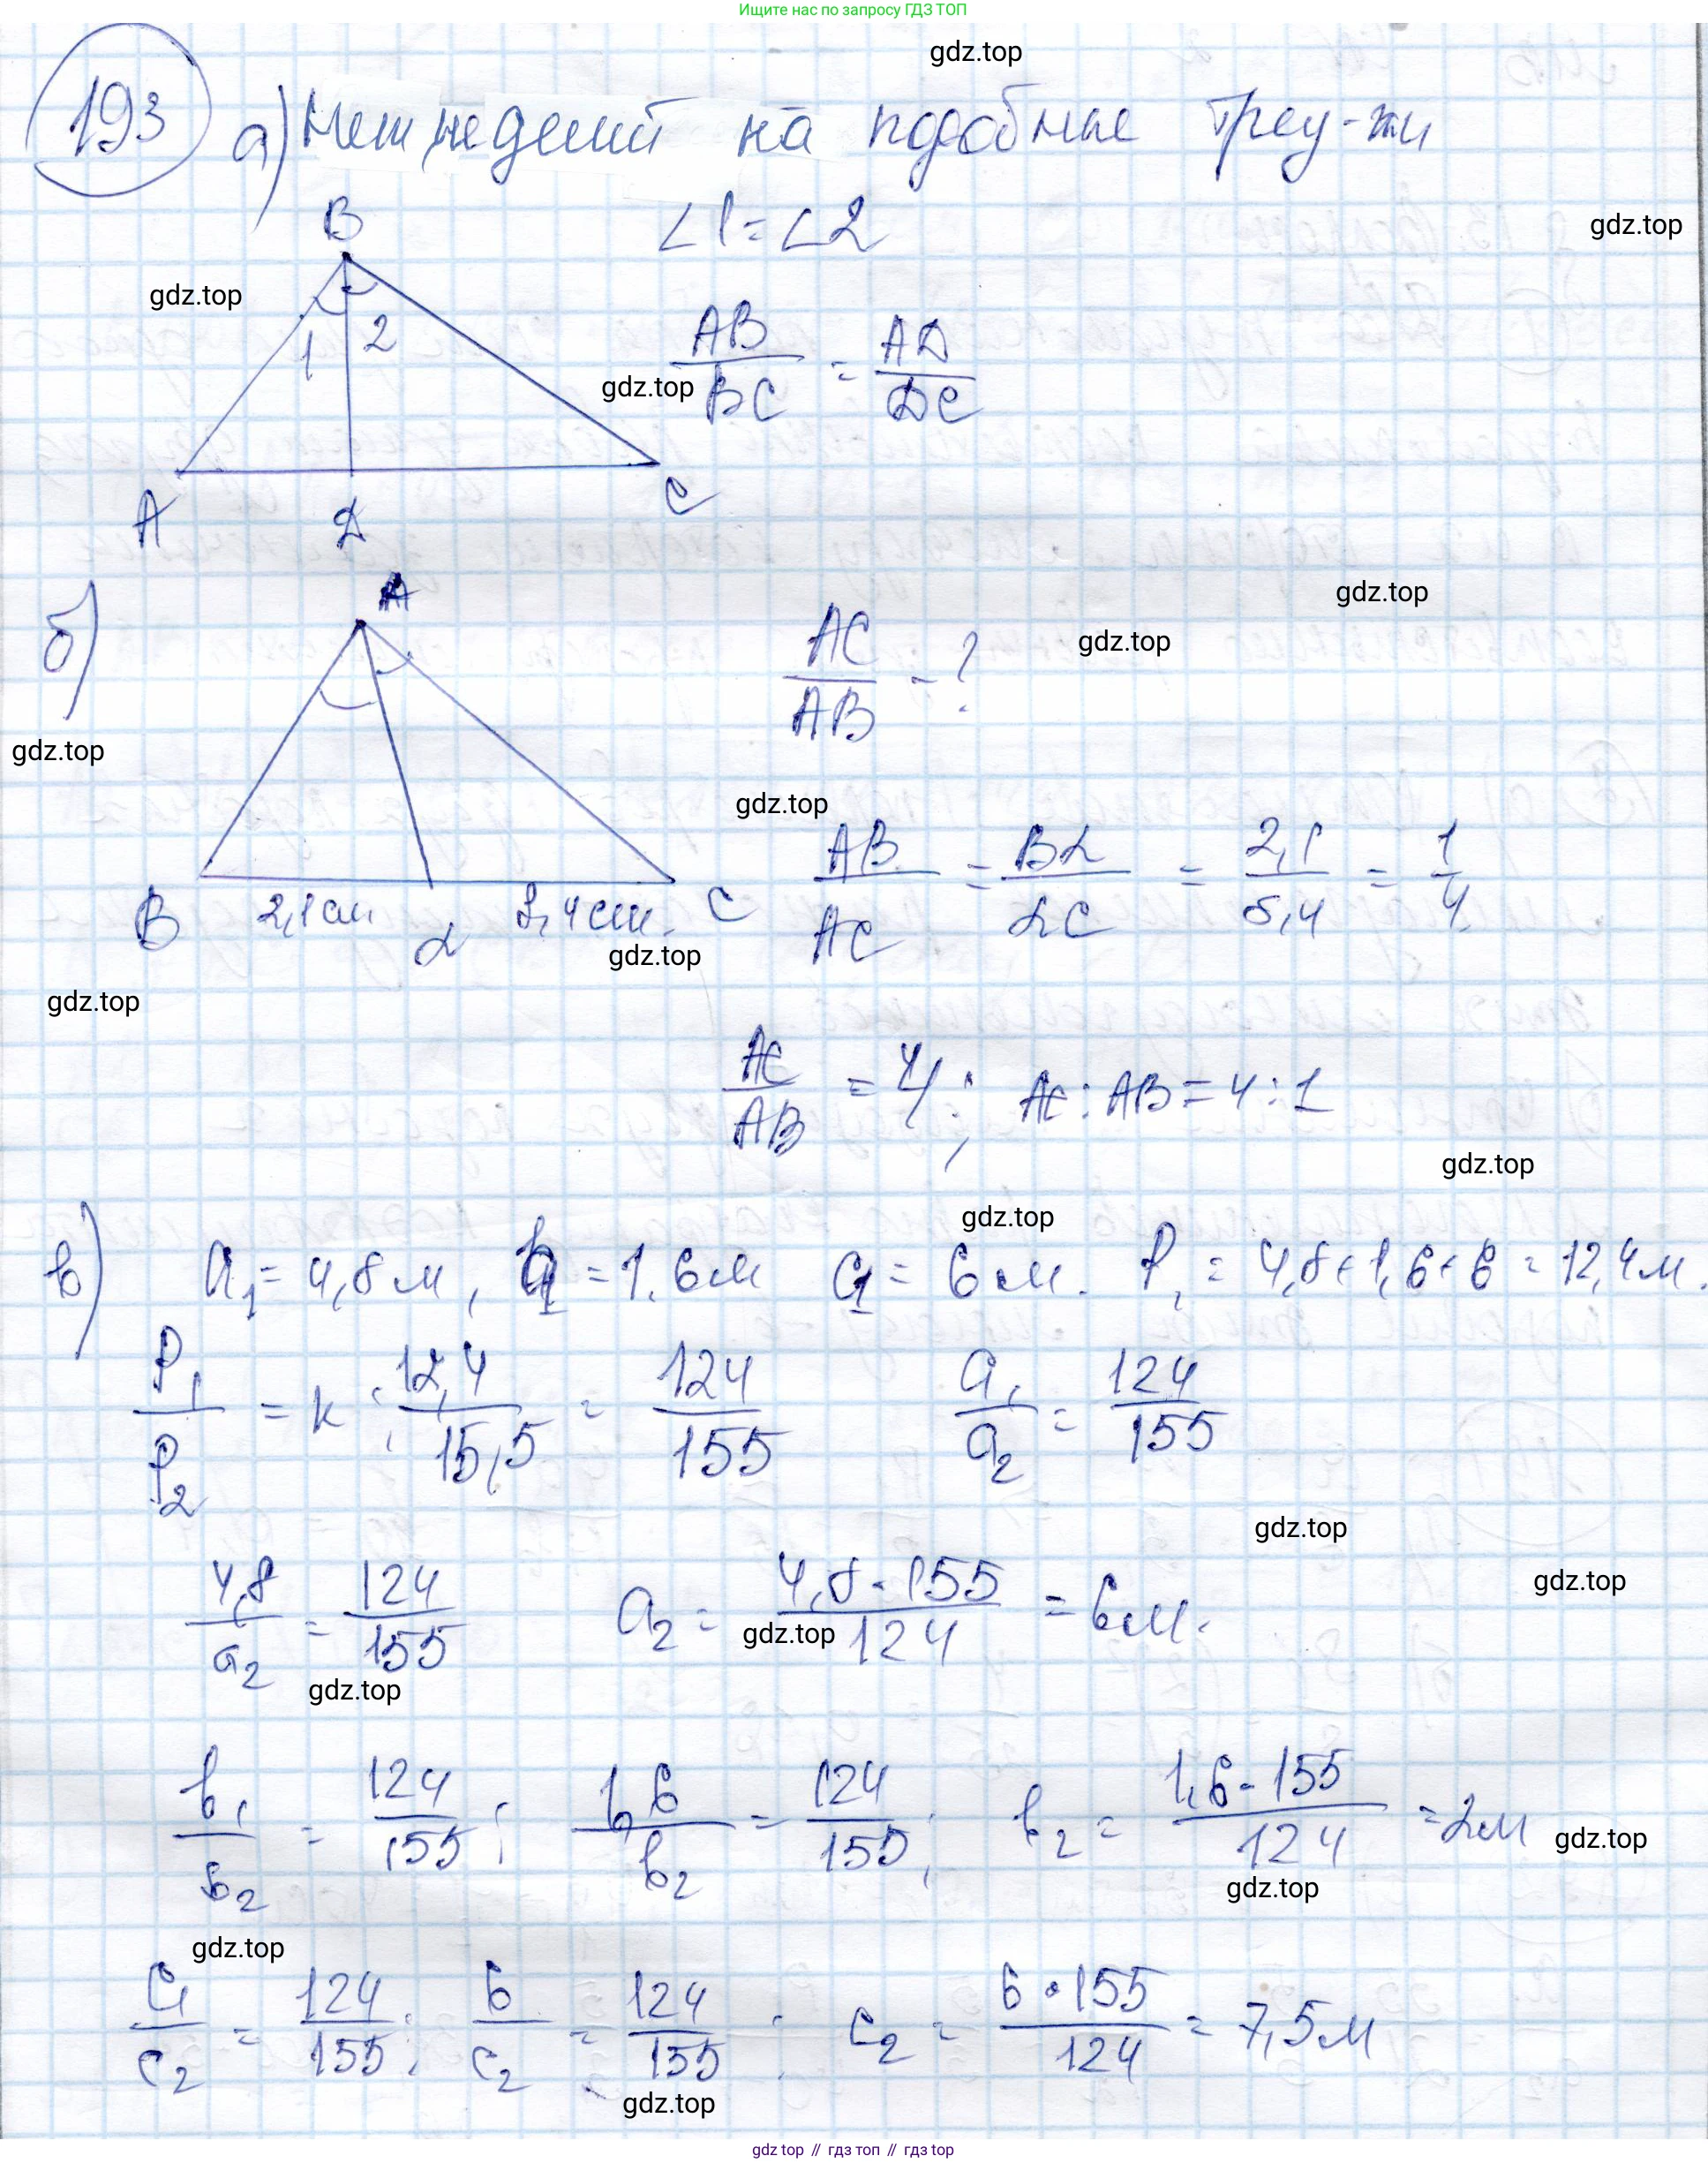 Ищите нас по запросу ГДЗ ТОП
gdz.top
193
а) на подобные треу-ки
gdz.top
B
∠1 = ∠2
gdz.top
1 2
AB/BC = AD/DC
gdz.top
A D C
gdz.top
б)
A
AC/AB - ?
gdz.top
gdz.top
gdz.top
AB/AC = BD/DC = 2,1/8,4 = 1/4
B 2,1 см D 8,4 см. C
gdz.top
gdz.top
AC/AB = 4; AC : AB = 4 : 1
gdz.top
gdz.top
в) a₁ = 4,8 м, b₁ = 1.6 м c₁ = 6 м. P₁ = 4,8 + 1,6 + 6 = 12,4 м.
P₁/P₂ = k ; 12,4/15,5 = 124/155 a₁/a₂ = 124/155
gdz.top
4,8/a₂ = 124/155 a₂ = 4,8 · 155/124 = 6 м.
gdz.top
gdz.top
gdz.top
b₁/b₂ = 124/155; 1,6/b₂ = 124/155; b₂ = 1,6 · 155/124 = 2 м
gdz.top
gdz.top
gdz.top
c₁/c₂ = 124/155; 6/c₂ = 124/155; c₂ = 6 · 155/124 = 7,5 м
gdz.top
gdz top // гдз топ // гдз top